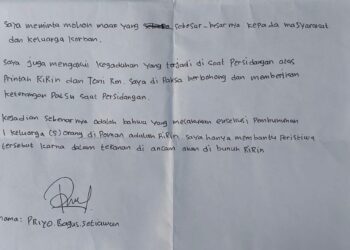 Saya meminta mohon maaf yang sebesar-besarnya kepada masyarakat
dan keluarga korban.
Saya juga mengakui kegaduhan yang terjadi di saat Persidangan atas
Printah RiRin dan Toni RM. Saya di Paksa berbohong dan memberikan
keterangan Palsu saat Persidangan.
Kejadian sebenarnya adalah bahwa yang melakukan eksekusi Pembunuhan
1 keluarga (5) orang di Paoman adalah RiRin, saya hanya membantu Peristiwa
tersebut karna dalam tekanan di ancam akan di bunuh RiRin
nama: PRIYO.Bagus.Setiawan